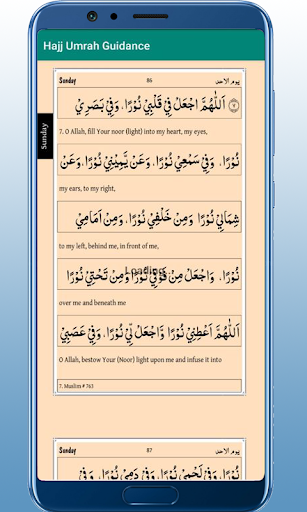 Hajj Umrah Guidance
Sunday
Sunday 86 يوم الاحد
اَللّٰهُمَّ اجْعَلْ فِيْ قَلْبِيْ نُوْرًا، وَفِيْ بَصَرِيْ
7. O Allah, fill Your noor (light) into my heart, my eyes,
نُوْرًا، وَفِيْ سَمْعِيْ نُوْرًا، وَعَنْ يَّمِيْنِيْ نُوْرًا، وَعَنْ
my ears, to my right,
شِمَالِيْ نُوْرًا، وَمِنْ خَلْفِيْ نُوْرًا، وَمِنْ اَمَامِيْ
to my left, behind me, in front of me,
نُوْرًا، وَاجْعَلْ مِنْ فَوْقِيْ نُوْرًا، وَمِنْ تَحْتِيْ نُوْرًا
Loading
over me and beneath me
اَللّٰهُمَّ اَعْطِنِيْ نُوْرًا وَّاجْعَلْ لِّيْ نُوْرًا، وَفِيْ عَصَبِيْ
O Allah, bestow Your (Noor) light upon me and infuse it into
7. Muslim # 763
Sunday 87 يوم الاحد
نُوْرًا، وَفِيْ لَحْمِيْ نُوْرًا، وَفِيْ دَمِيْ نُوْرًا، وَفِيْ